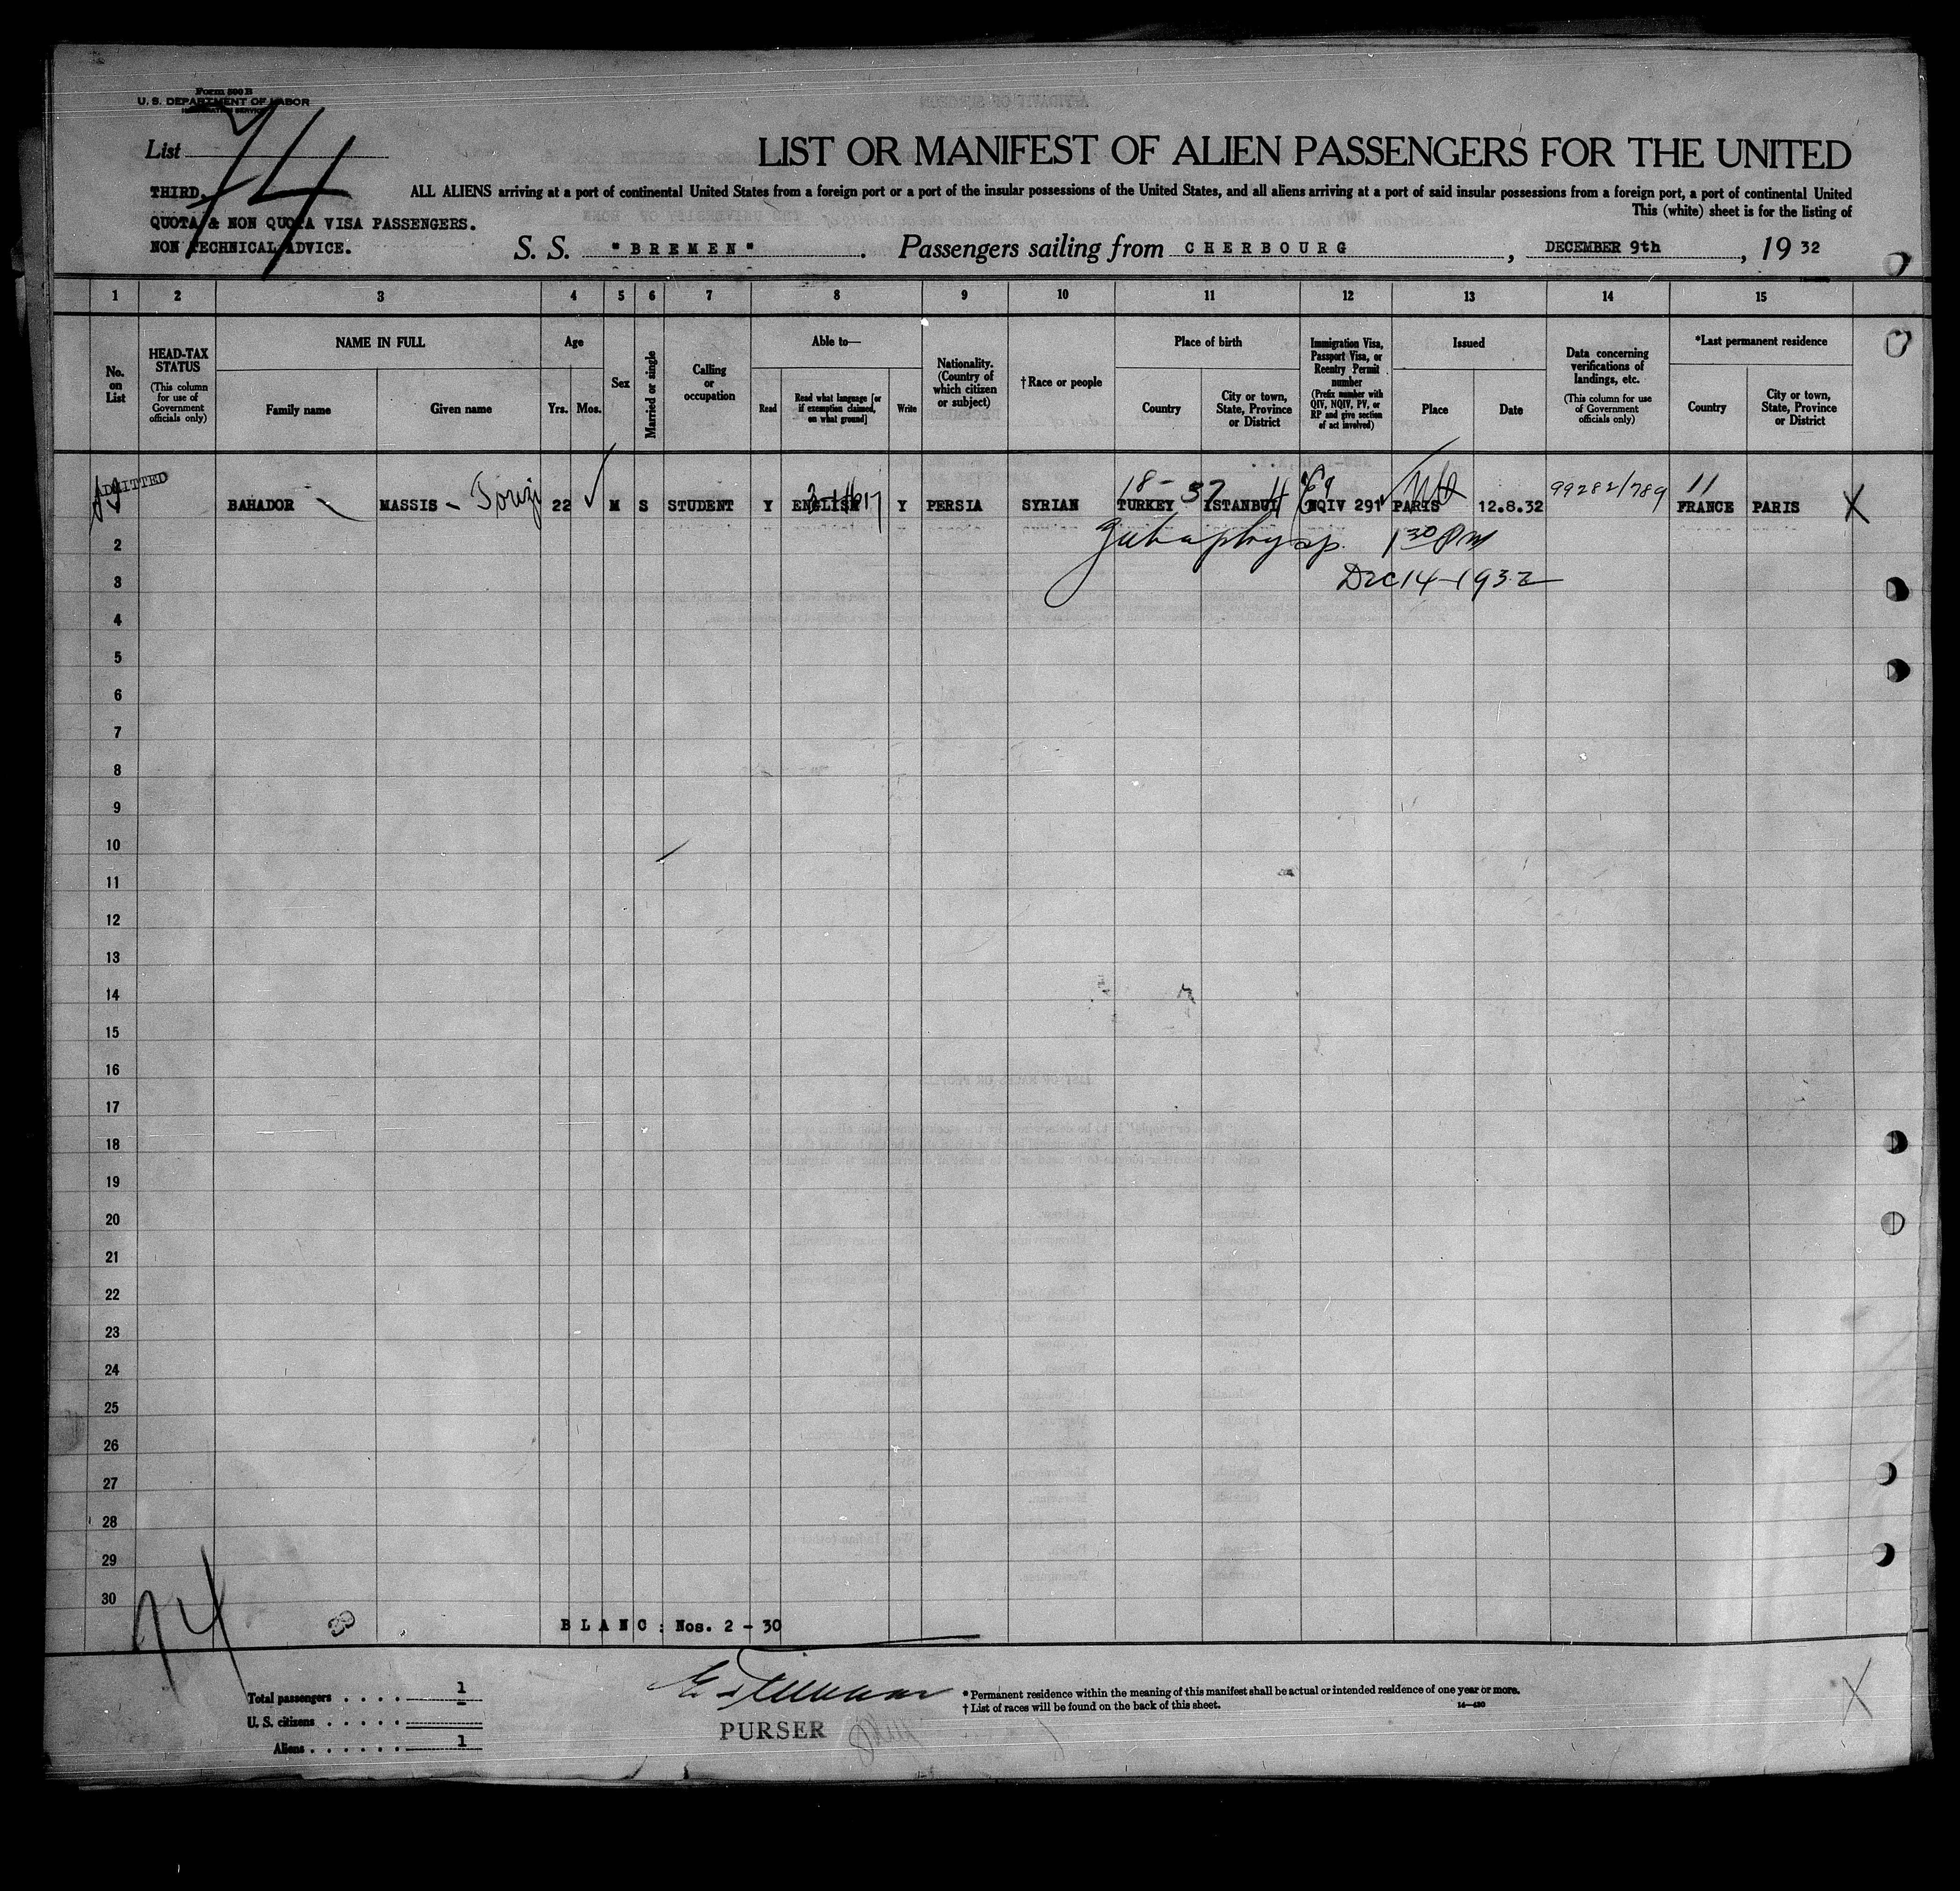 Form 500 B
U. S. DEPARTMENT OF LABOR
IMMIGRATION SERVICE
List 74
LIST OR MANIFEST OF ALIEN PASSENGERS FOR THE UNITED
THIRD.
ALL ALIENS arriving at a port of continental United States from a foreign port or a port of the insular possessions of the United States, and all aliens arriving at a port of said insular possessions from a foreign port, a port of continental United
QUOTA & NON QUOTA VISA PASSENGERS.
This (white) sheet is for the listing of
NON TECHNICAL ADVICE.
S. S. "BREMEN". Passengers sailing from CHERBOURG, DECEMBER 9th, 19 32
1 2 3 4 5 6 7 8 9 10 11 12 13 14 15
No. on List
HEAD-TAX STATUS (This column for use of Government officials only)
NAME IN FULL
Family name
Given name
Age
Yrs. Mos.
Sex
Married or single
Calling or occupation
Able to—
Read
Read what language [or if exemption claimed, on what ground]
Write
Nationality. (Country of which citizen or subject)
†Race or people
Place of birth
Country
City or town, State, Province or District
Immigration Visa, Passport Visa, or Reentry Permit number (Prefix number with QIV, NQIV, PV, or RP and give section of act involved)
Issued
Place
Date
Data concerning verifications of landings, etc. (This column for use of Government officials only)
*Last permanent residence
Country
City or town, State, Province or District
ADMITTED
18- 37
99282/789 11
BAHADOR MASSIS - 22 M S STUDENT Y ENGLISH Y PERSIA SYRIAN TURKEY ISTANBUL NQIV 291 PARIS 12.8.32 FRANCE PARIS X
2 1 30 PM
3 Dec 14-1932
4
5
6
7
8
9
10
11
12
13
14
15
16
17
18
19
20
21
22
23
24
25
26
27
28
29
30
74
BLANC: Nos. 2 - 30
Total passengers . . . . 1
U. S. citizens . . . . .
Aliens . . . . . . 1
PURSER
* Permanent residence within the meaning of this manifest shall be actual or intended residence of one year or more.
† List of races will be found on the back of this sheet.
14—480
X